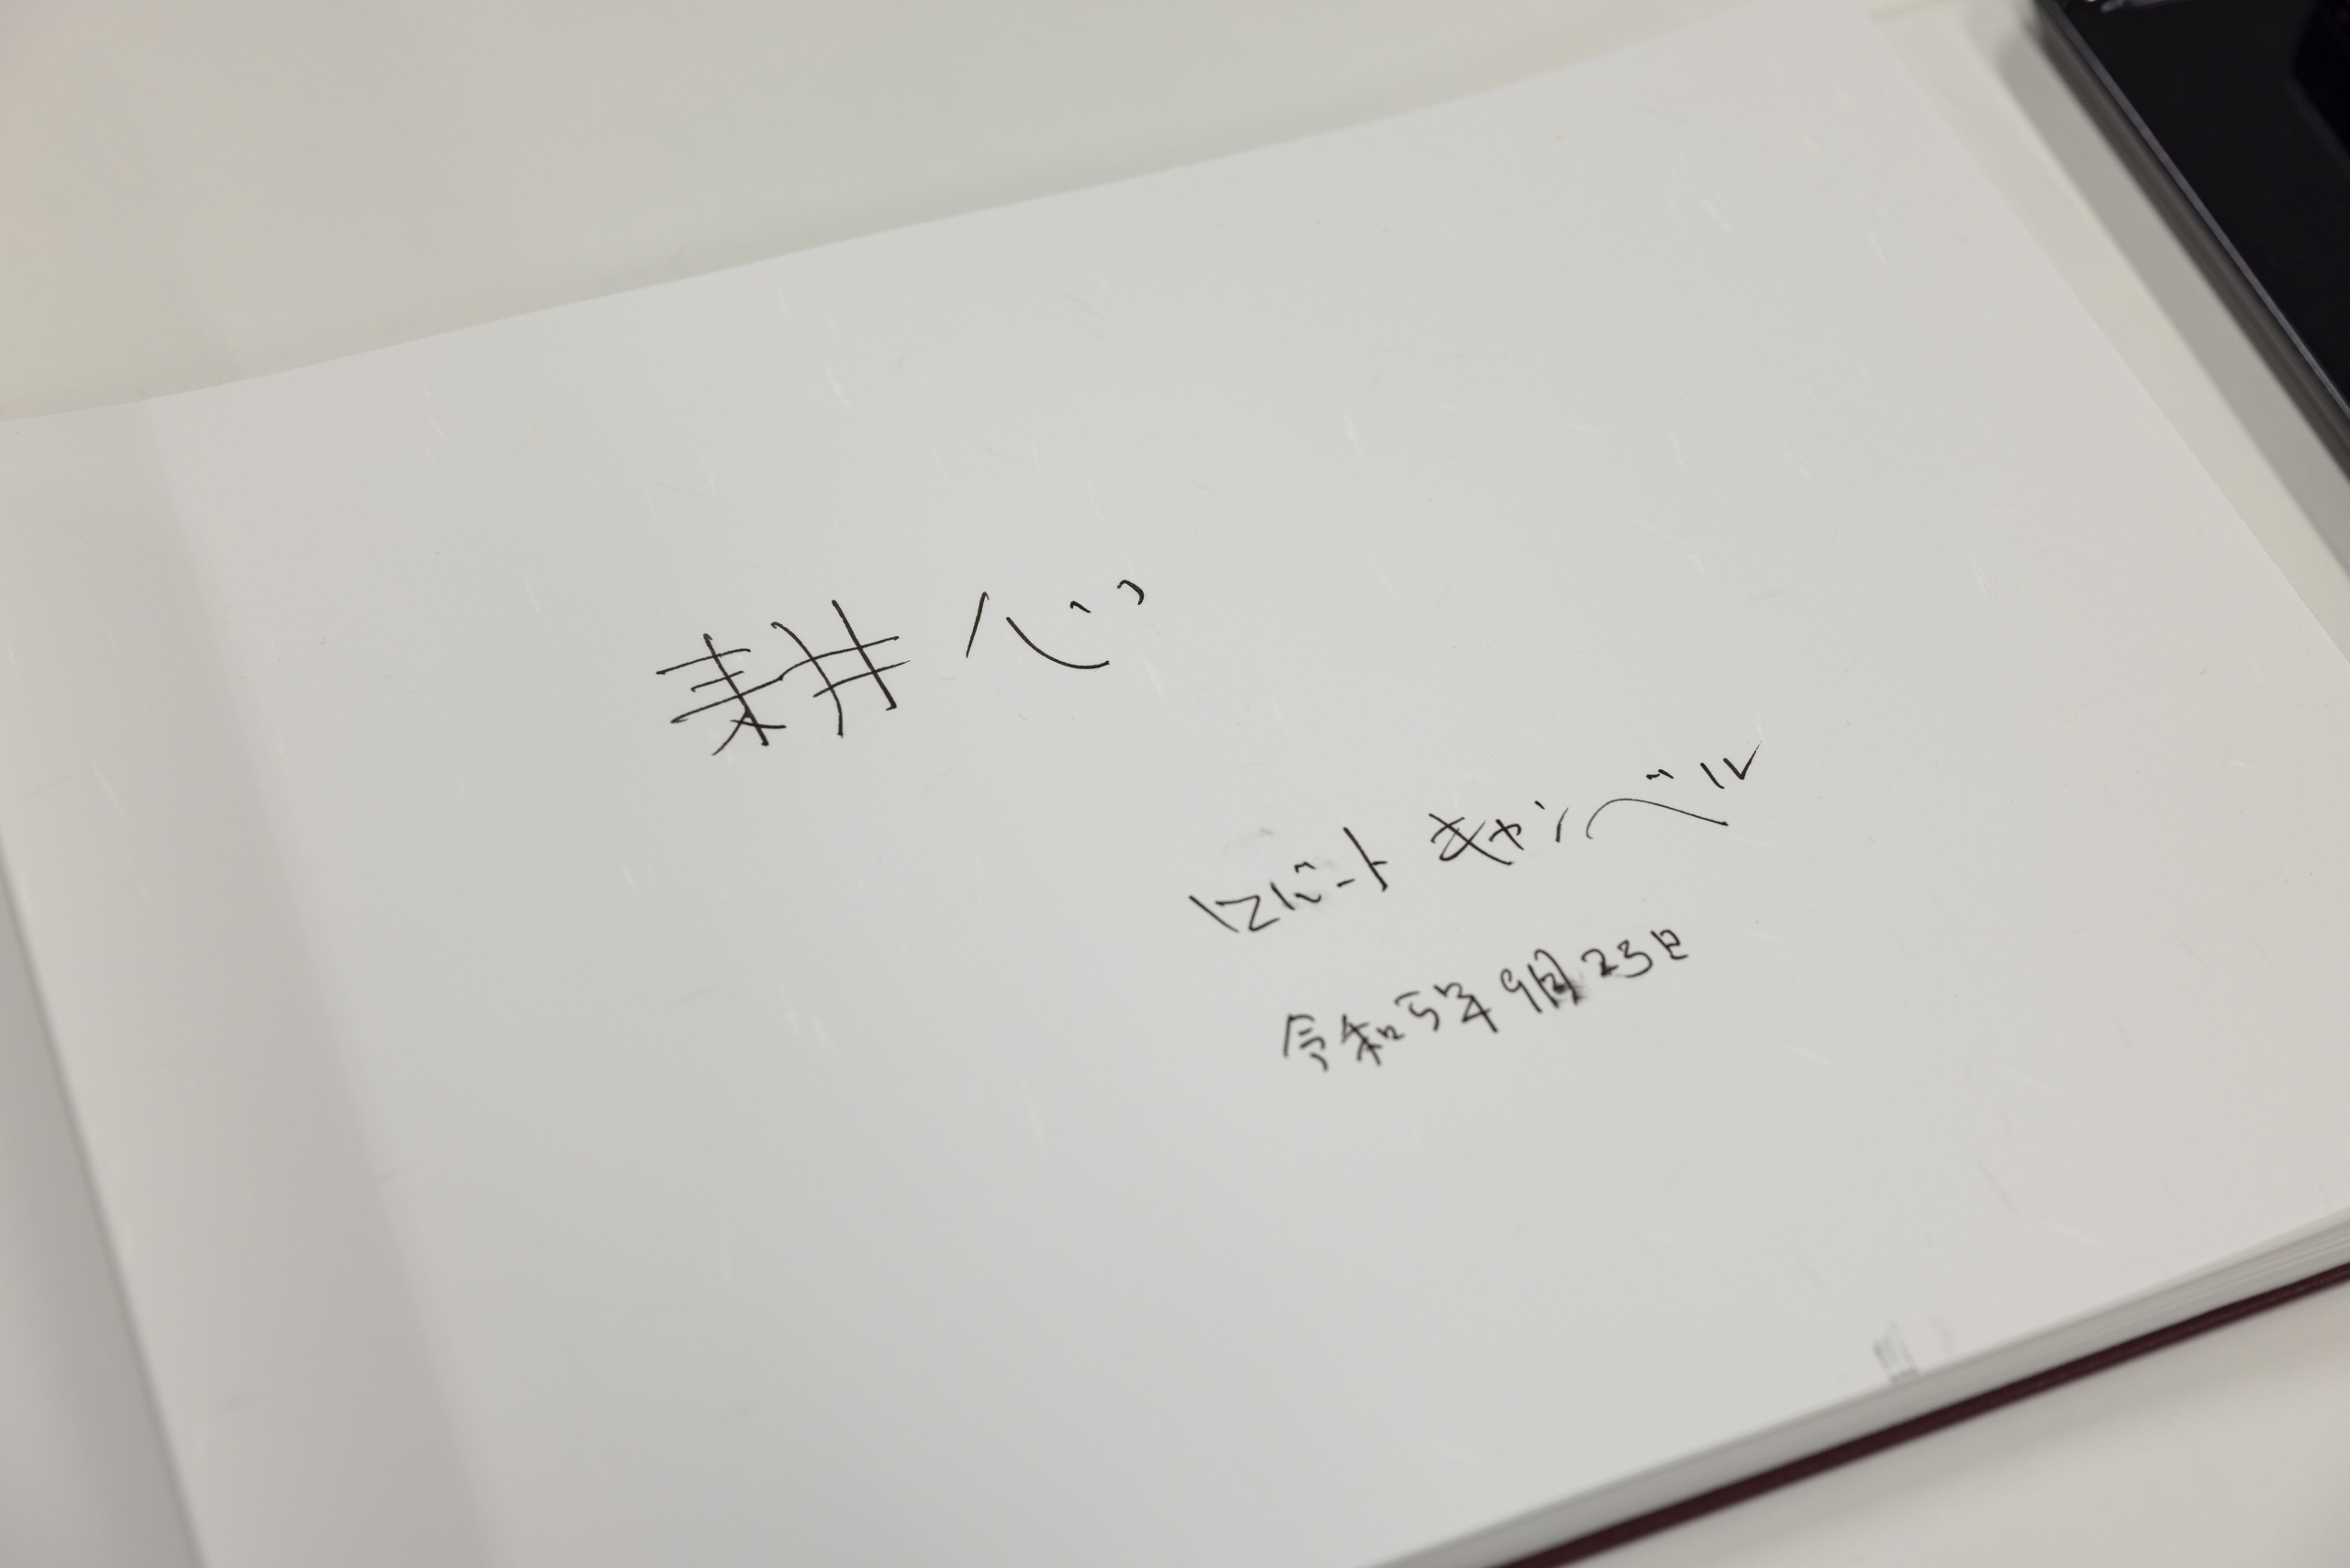 耕心
ロバート キャンベル
令和5年9月23日